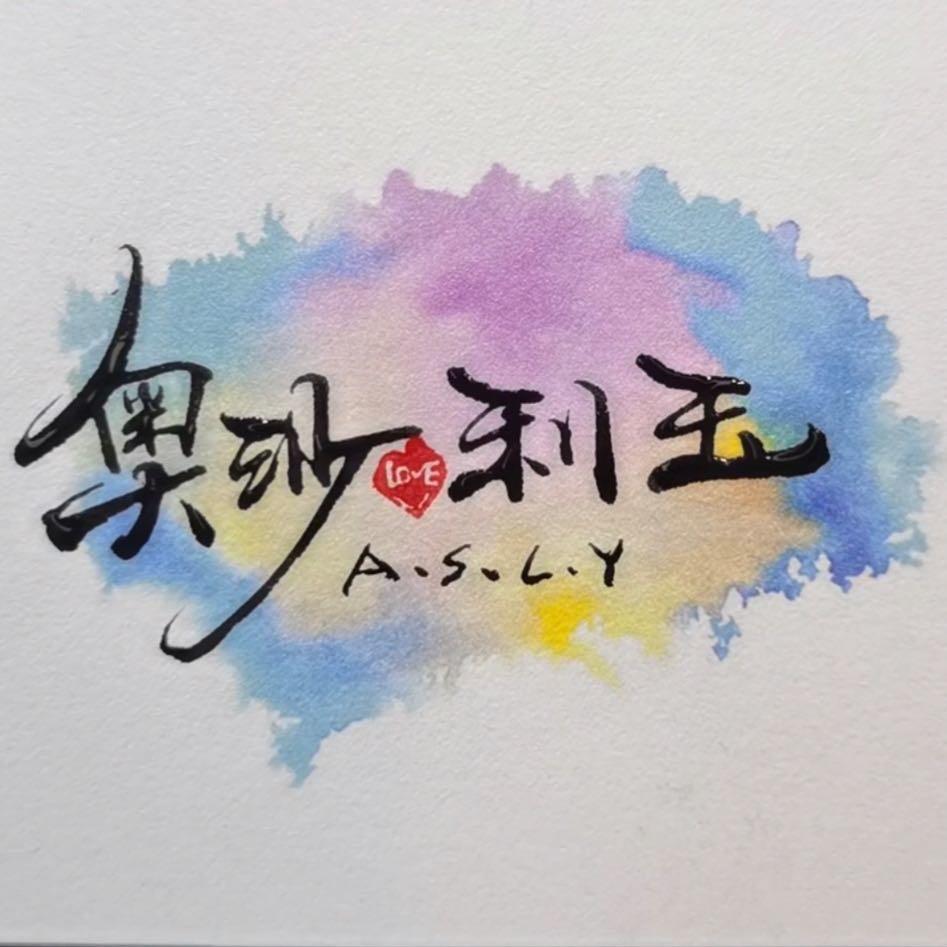 奥纱LOVE利玉
A.S.L.Y